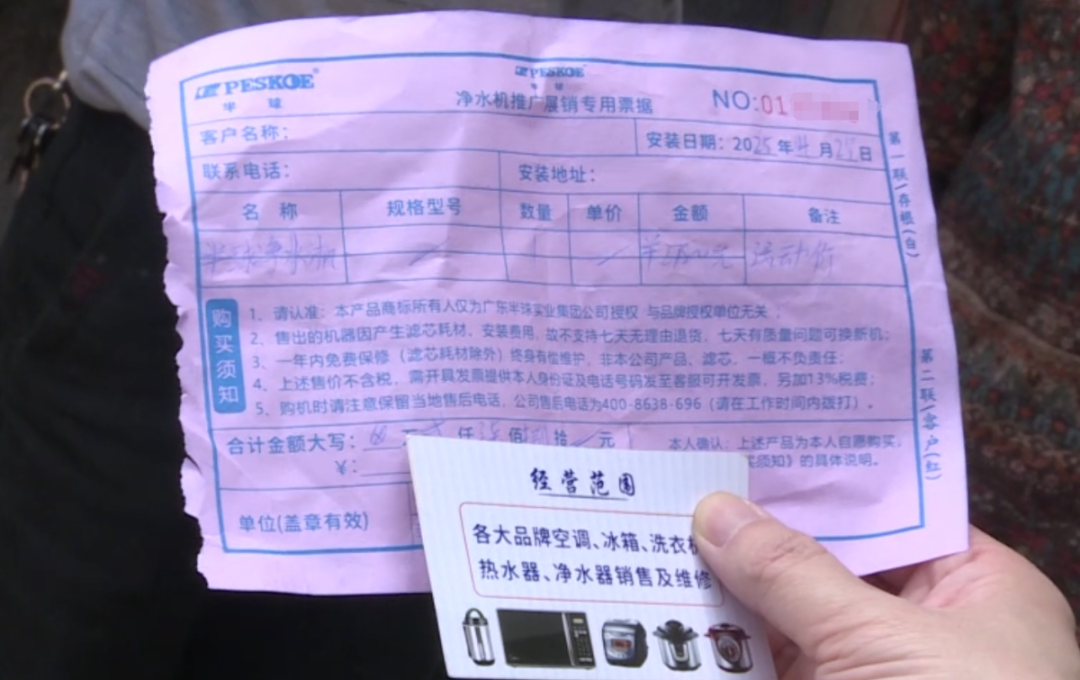 PESKOE
半 球
PESKOE
半 球
净水机推广展销专用票据
NO:01
客户名称：
安装日期：2025年4月 日
联系电话：
安装地址：
名 称 规格型号 数量 单价 金额 备注
半球净水机 活动价
购买须知
1、请认准：本产品商标所有人仅为广东半球实业集团公司授权 与品牌授权单位无关；
2、售出的机器因产生滤芯耗材、安装费用，故不支持七天无理由退货，七天有质量问题可换新机；
3、一年内免费保修（滤芯耗材除外）终身有偿维护，非本公司产品、滤芯，一概不负责任；
4、上述售价不含税，需开具发票提供本人身份证及电话号码发至客服可开发票，另加13%税费；
5、购机时请注意保留当地售后电话，公司售后电话为400-8638-696（请在工作时间内拨打）。
合计金额大写： 万 仟 佰 拾 元
¥：
本人确认：上述产品为本人自愿购买，
买须知》的具体说明。
单位(盖章有效)
第一联/存根(白)
第二联/客户(红)
经营范围
各大品牌空调、冰箱、洗衣机
热水器、净水器销售及维修